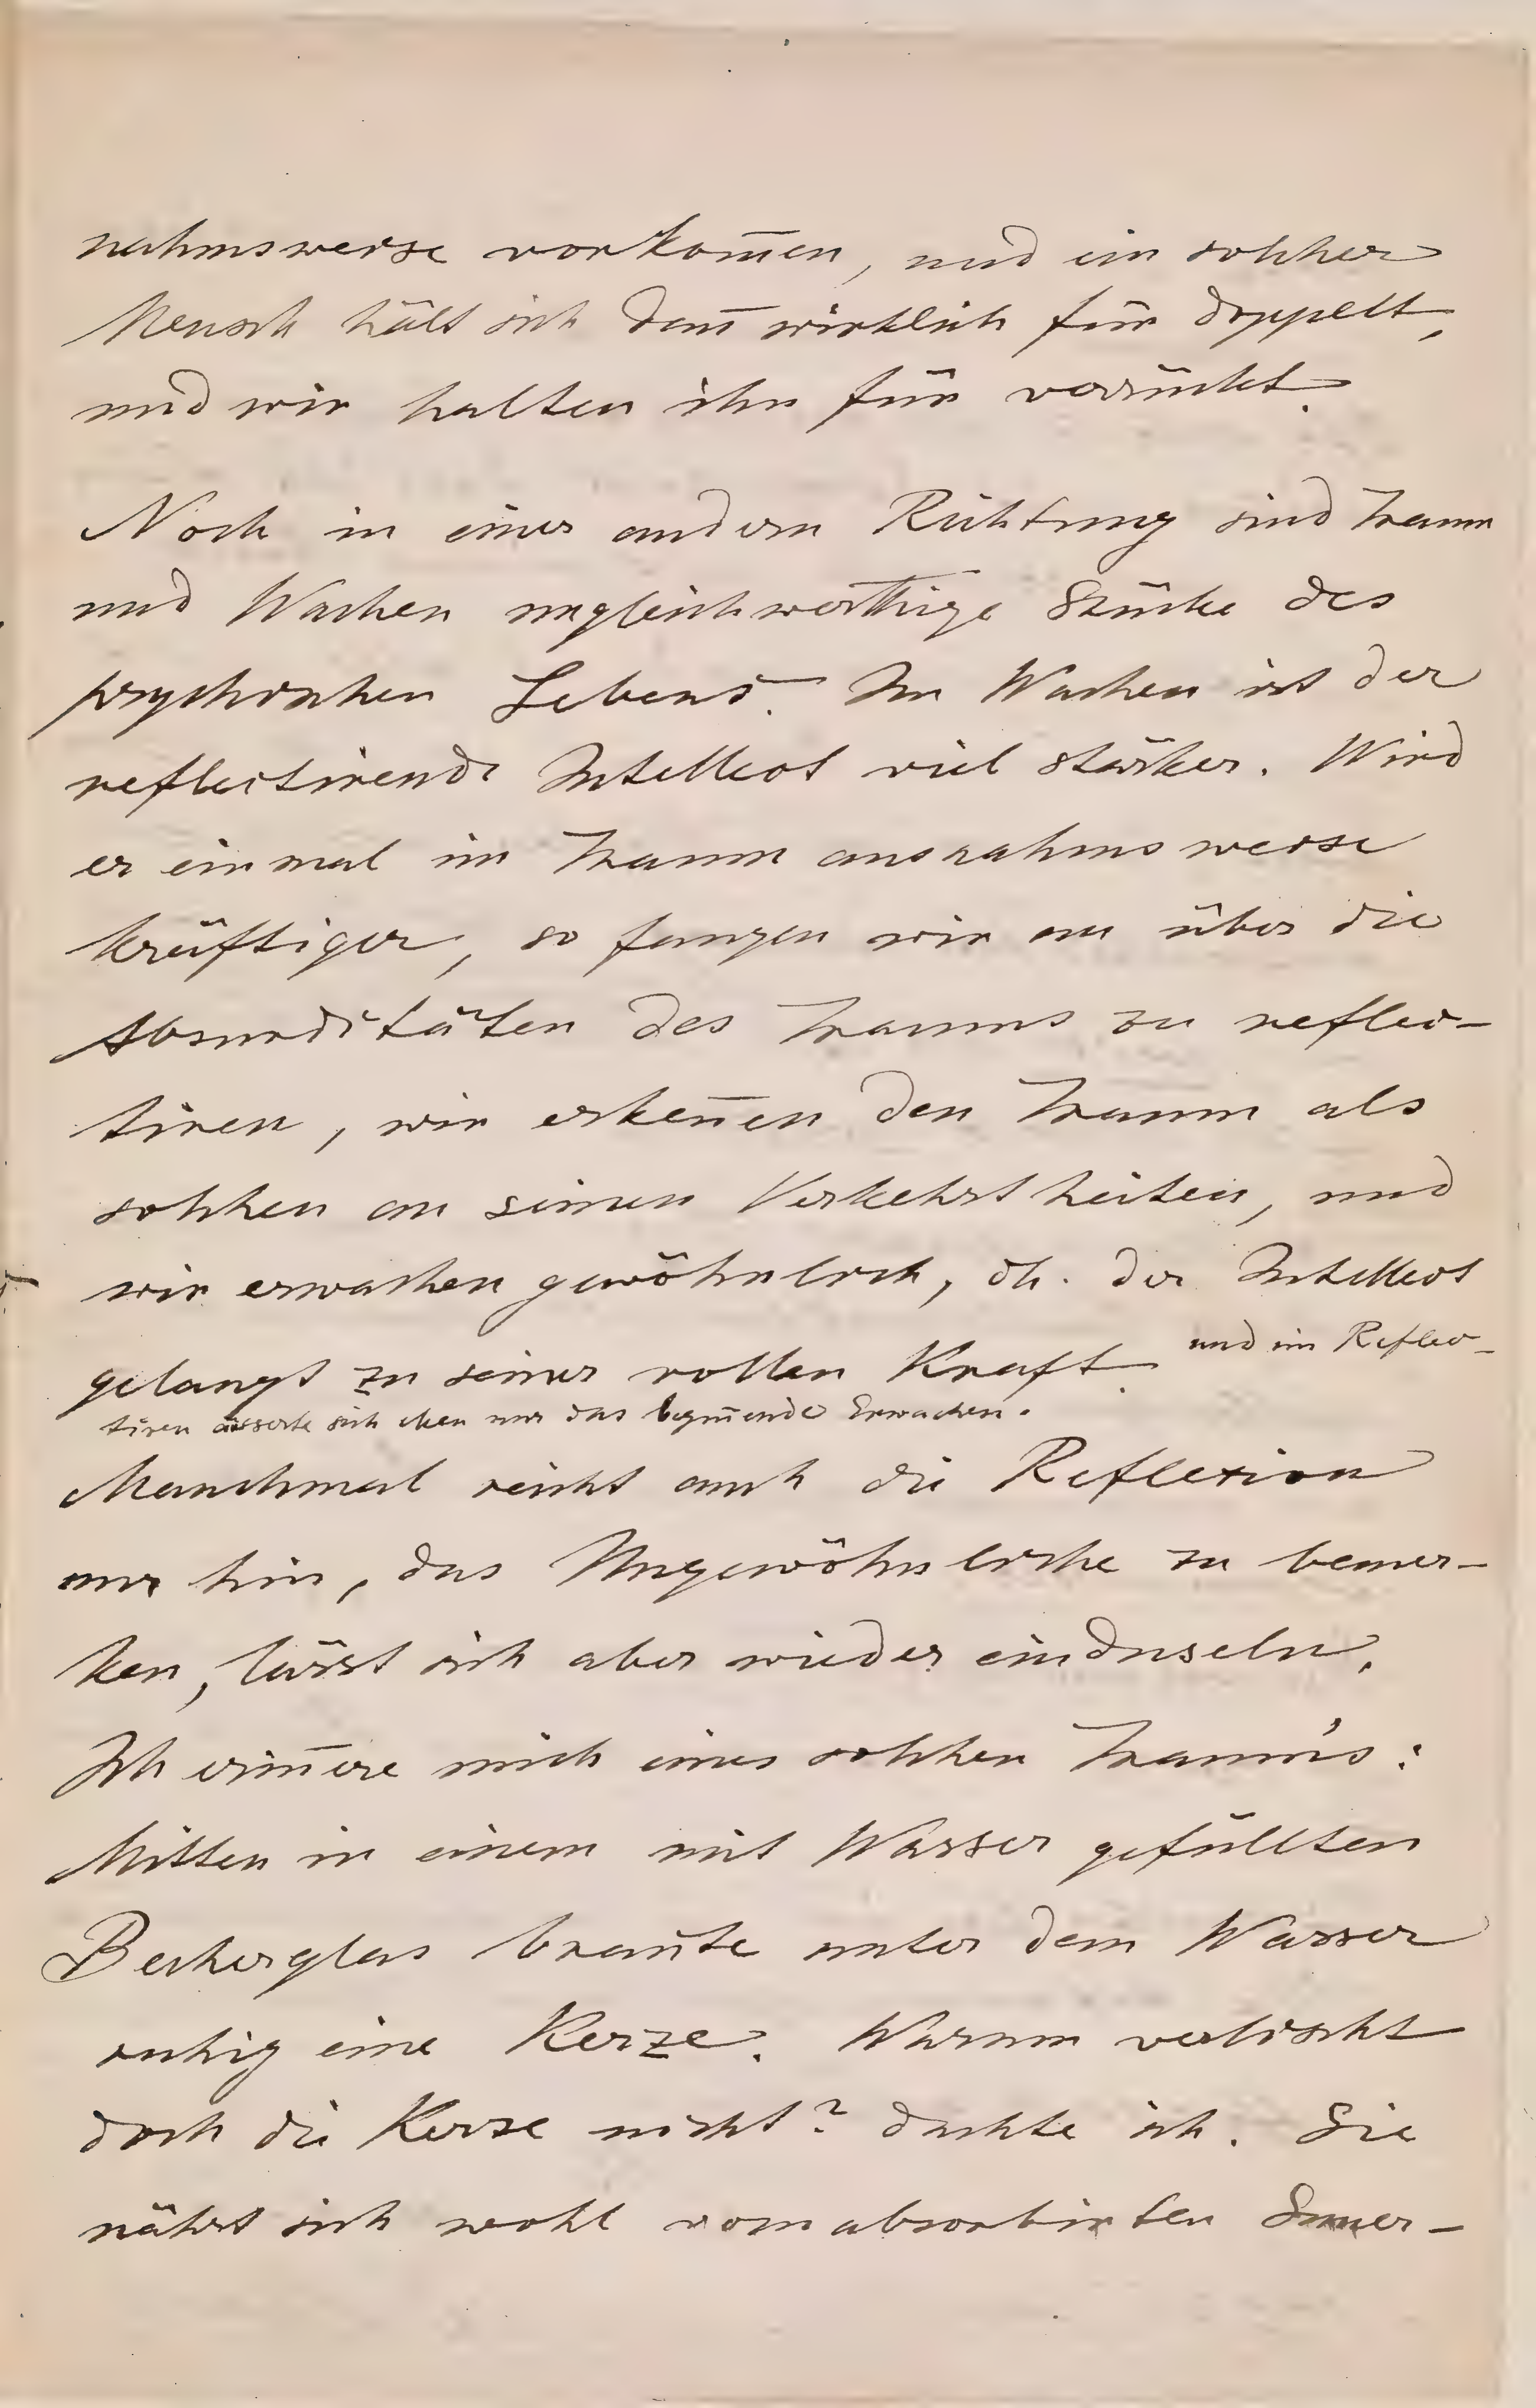 nahmsweise vorkom̅en, und ein solcher
Mensch hält sich dan̅ wirklich für doppelt,
und wir halten ihn für verrückt.
Noch in einer andern Richtung sind Traum
und Wachen ungleichwerthige Stücke des
psychischen Lebens. Im Wachen ist der
reflectirende Intellect viel stärker. Wird
er einmal im Traum ausnahmsweise
kräftiger, so fangen wir an über die
Absurditäten des Traums zu reflec-
tiren, wir erken̅en den Traum als
solchen an seinen Verkehrtheiten, und
wir erwachen gewöhnlich, dh. der Intellect
gelangt zu seiner vollen Kraft. und im Reflec-
tiren äusserte sich eben nur das begin̅ende Erwachen.
Manchmal reicht auch die Reflexion
nur hin, das Ungewöhnliche zu bemer-
ken, lässt sich aber wieder einduseln.
Ich erin̅ere mich eines solchen Traum's:
Mitten in einem mit Wasser gefüllten
Becherglas bran̅te unter dem Wasser
ruhig eine Kerze. Warum verlischt
doch die Kerze nicht? dachte ich. Sie
nährt sich wohl vom absorbirten Sauer-